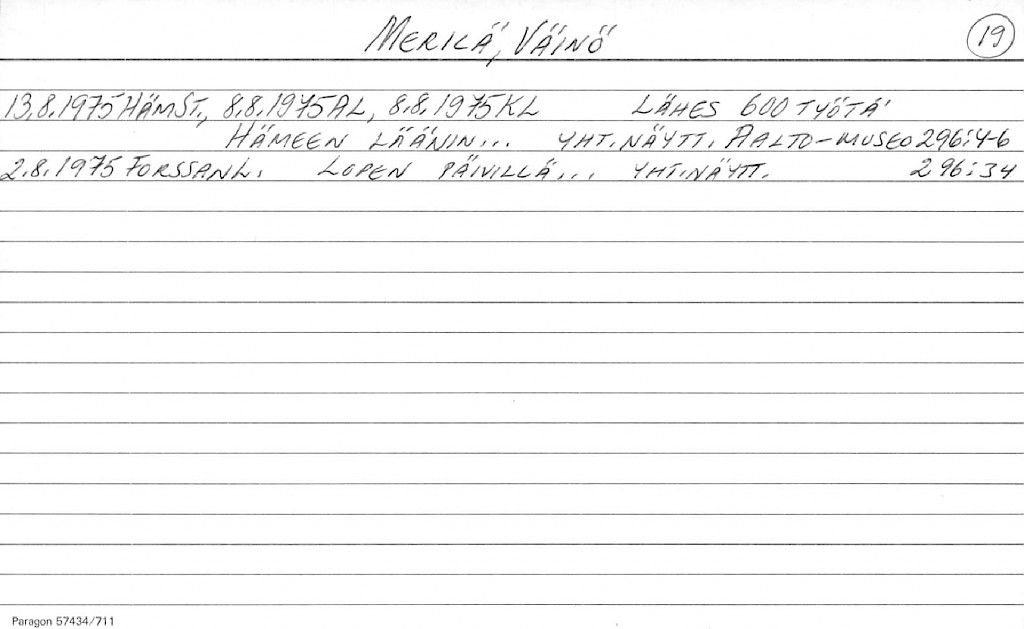 MERILÄ, VÄINÖ 19
13.8.1975 HÄMST., 8.8.1975 AL, 8.8.1975 KL LÄHES 600 TYÖTÄ
HÄMEEN LÄÄNIN... YHT.NÄYTT. AALTO-MUSEO 296:4-6
2.8.1975 FORSSANL. LOPEN PÄIVILLÄ... YHT.NÄYTT. 296:34
Paragon 57434/711